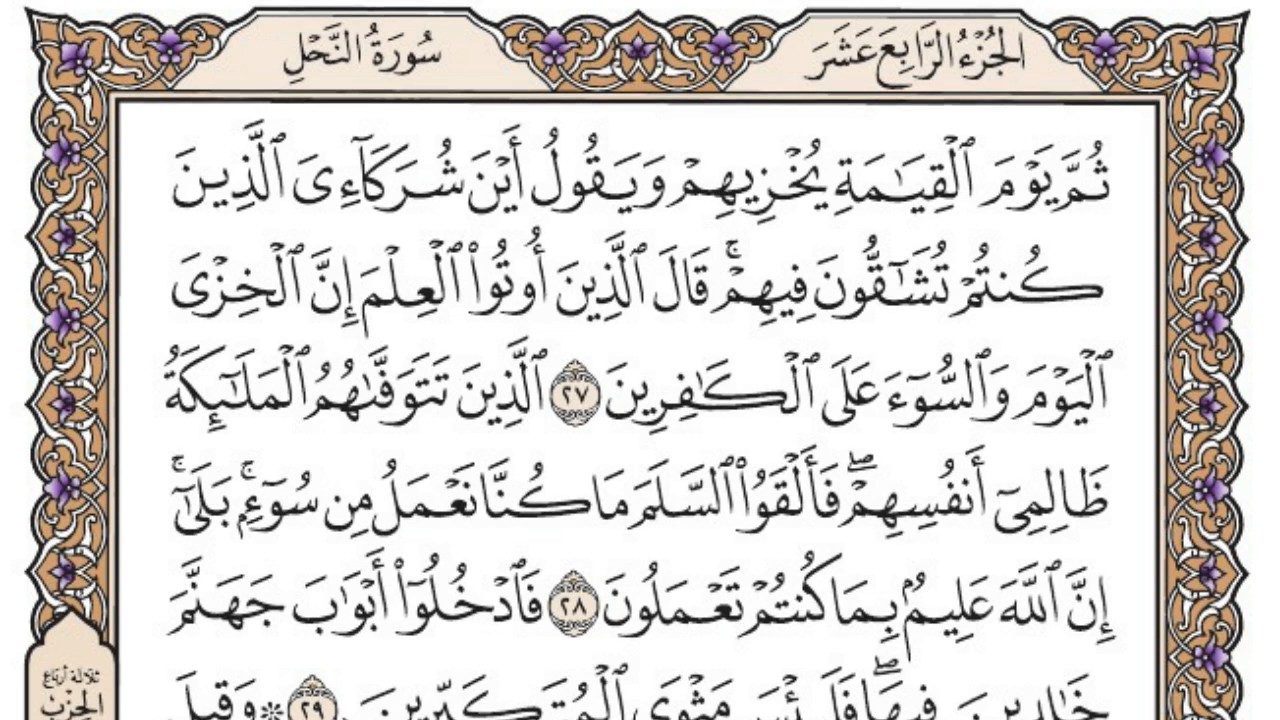 الجُزْءُ الرَّابِعَ عَشَرَ
سُورَةُ النَّحْلِ
ثُمَّ يَوْمَ ٱلْقِيَـٰمَةِ يُخْزِيهِمْ وَيَقُولُ أَيْنَ شُرَكَآءِىَ ٱلَّذِينَ
كُنتُمْ تُشَـٰٓقُّونَ فِيهِمْ ۚ قَالَ ٱلَّذِينَ أُوتُوا۟ ٱلْعِلْمَ إِنَّ ٱلْخِزْىَ
ٱلْيَوْمَ وَٱلسُّوٓءَ عَلَى ٱلْكَـٰفِرِينَ ٢٧ ٱلَّذِينَ تَتَوَفَّىٰهُمُ ٱلْمَلَـٰٓئِكَةُ
ظَالِمِىٓ أَنفُسِهِمْ ۖ فَأَلْقَوُا۟ ٱلسَّلَمَ مَا كُنَّا نَعْمَلُ مِن سُوٓءٍۭ ۚ بَلَىٰٓ ۚ
إِنَّ ٱللَّهَ عَلِيمٌۢ بِمَا كُنتُمْ تَعْمَلُونَ ٢٨ فَٱدْخُلُوٓا۟ أَبْوَٰبَ جَهَنَّمَ
خَـٰلِدِينَ فِيهَا ۖ فَلَبِئْسَ مَثْوَى ٱلْمُتَكَبِّرِينَ ٢٩ ۞ وَقِيلَ
ثلاثة أرباع
الحزب